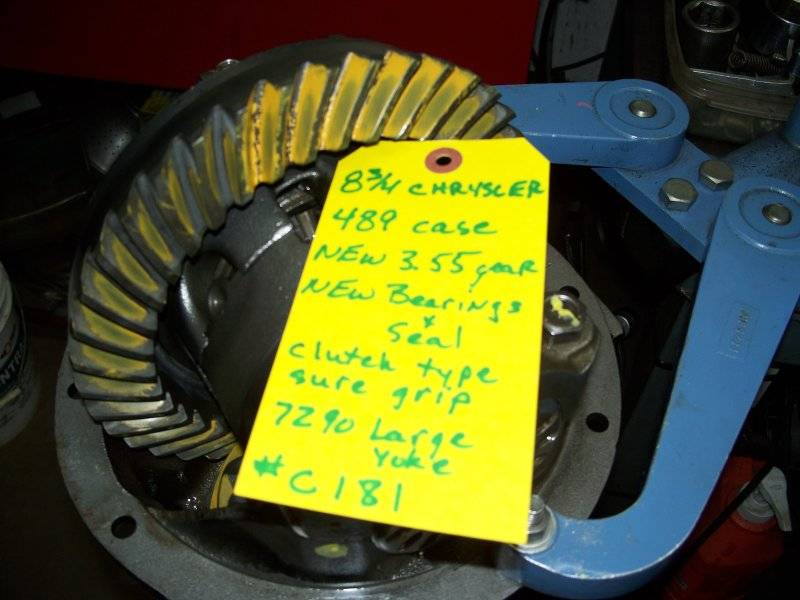 8 3/4 CHRYSLER
489 case
NEW 3.55 gear
NEW Bearings
& Seal
clutch type
sure grip
7290 Large
Yoke
# C181